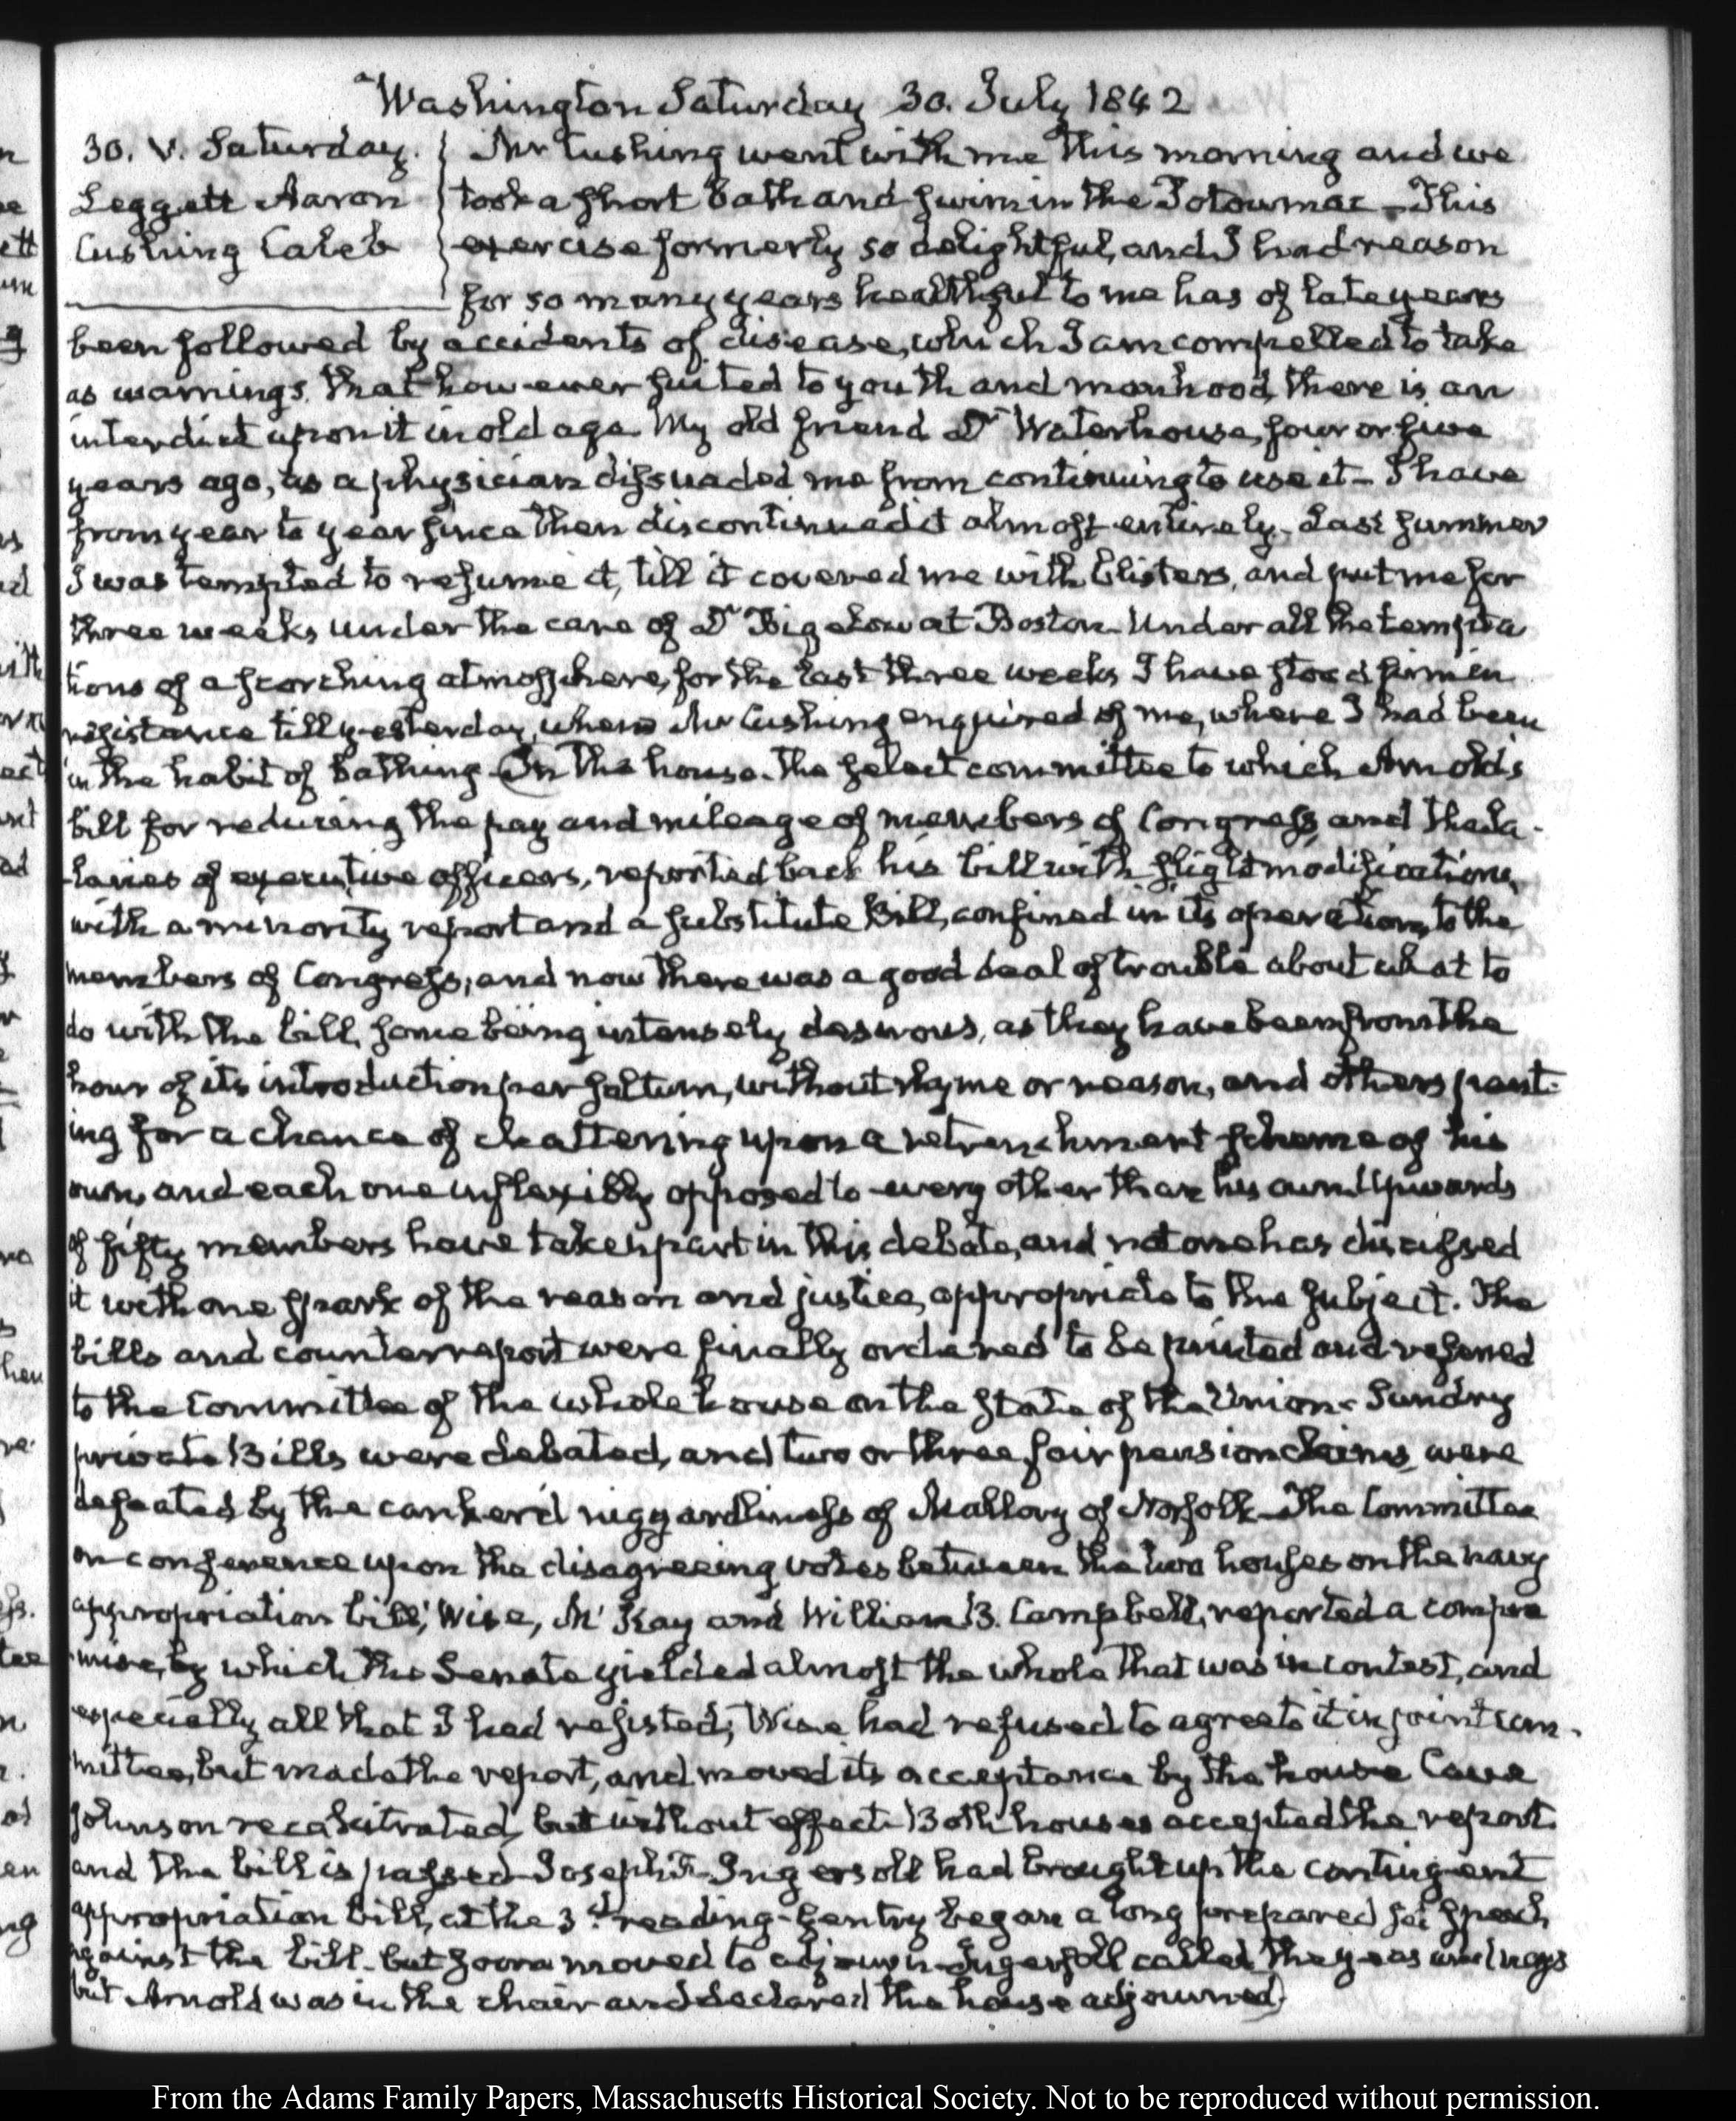 Washington Saturday 30. July 1842
30. V. Saturday.
Leggett Aaron
Cushing Caleb
Mr Cushing went with me this morning and we
took a short bath and swim in the Potowmac – This
exercise formerly so delightful, and I had reason
for so many years healthful to me has of late years
been followed by accidents of disease, which I am compelled to take
as warnings that however suited to youth and manhood, there is an
interdict upon it in old age. My old friend Dr Waterhouse, four or five
years ago, as a physician dissuaded me from continuing to use it – I have
from year to year since then discontinued it almost entirely – Last summer
I was tempted to resume it, till it covered me with blisters, and put me for
three weeks under the care of Dr Bigelow at Boston. Under all the tempta
tions of a scorching atmosphere, for the last three weeks I have stood firm in
resistance till yesterday, when Mr Cushing enquired of me, where I had been
in the habit of bathing – In the house. The select committee to which Arnold's
bill for reducing the pay and mileage of members of Congress and the sa-
-laries of executive officers, reported back his bill with slight modifications,
with a minority report and a substitute Bill, confined in its operation, to the
members of Congress; and now there was a good deal of trouble about what to
do with the bill, some being intensely desirous, as they have been from the
hour of its introduction per saltum, without rhyme or reason, and others pant-
ing for a chance of chattering upon a retrenchment scheme of his
own, and each one inflexibly opposed to every other than his own. Upwards
of fifty members have taken part in this debate, and not one has discussed
it with one spark of the reason and justice, appropriate to the subject. The
bills and counter report were finally ordered to be printed and referred
to the Committee of the whole house on the state of the Union – Sundry
private Bills were debated, and two or three fair pension claims, were
defeated by the canker'd niggardliness of Mallory of Norfolk – The Committee
on conference upon the disagreeing votes between the two houses on the navy
appropriation bill; Wise, McKay and William B. Campbell, reported a compro
mise, by which the Senate yielded almost the whole that was in contest, and
especially all that I had resisted; Wise had refused to agree to it in joint com-
mittee, but made the report, and moved its acceptance by the house Cave
Johnson recalcitrated, but without effect. Both houses accepted the report.
and the bill is passed – Joseph R. Ingersoll had brought up the contingent
appropriation bill, at the 3d. reading – Gentry began a long prepared set speech
against the bill – but soon moved to adjourn – Ingersoll called the yeas and nays
but Arnold was in the chair and declared the house adjourned)
From the Adams Family Papers, Massachusetts Historical Society. Not to be reproduced without permission.